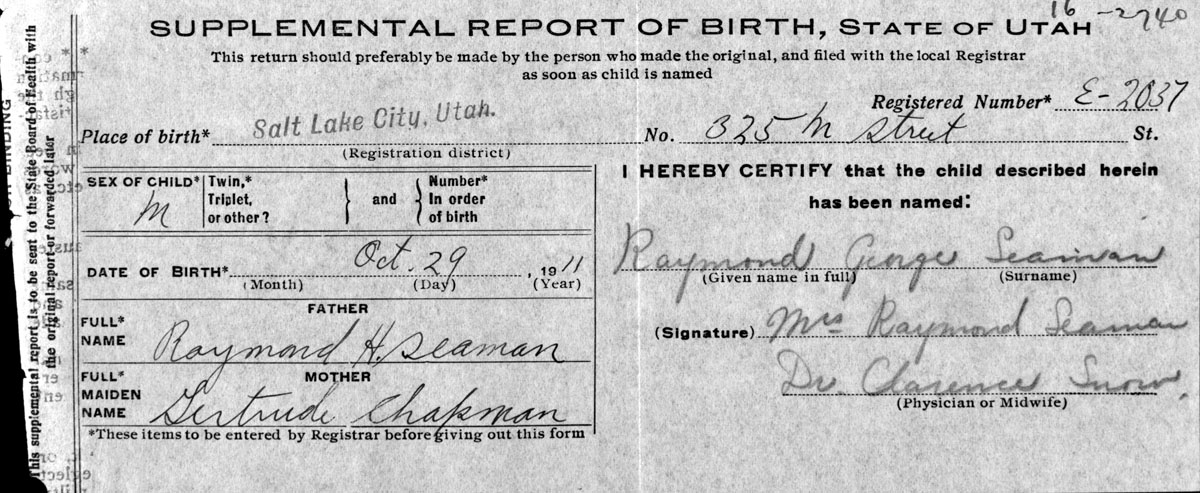 16 -2740
SUPPLEMENTAL REPORT OF BIRTH, STATE OF UTAH
This return should preferably be made by the person who made the original, and filed with the local Registrar
as soon as child is named
Registered Number* E-2037
Place of birth* Salt Lake City, Utah. No. 325 M Street St.
(Registration district)
SEX OF CHILD* M Twin,* Triplet, or other? } and { Number* In order of birth
DATE OF BIRTH* Oct. 29, 1911
(Month) (Day) (Year)
FATHER
FULL* NAME Raymond H. Seaman
MOTHER
FULL* MAIDEN NAME Gertrude Chapman
*These items to be entered by Registrar before giving out this form
I HEREBY CERTIFY that the child described herein
has been named:
Raymond George Seaman
(Given name in full) (Surname)
(Signature) Mrs Raymond Seaman
Dr. Clarence Snow
(Physician or Midwife)
This supplemental report is to be sent to the State Board of Health with
the original report or forwarded later
BINDING